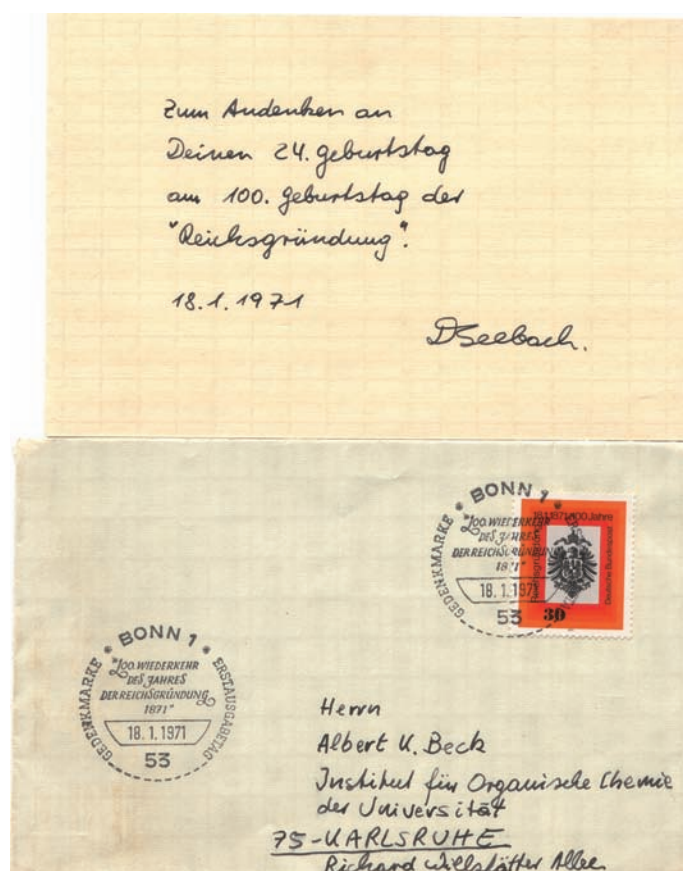 Zum Andenken an
Deinen 24. Geburtstag
am 100. Geburtstag der
"Reichsgründung".
18.1.1971
DSeebach.
* BONN 1 *
GEDENKMARKE
"100. WIEDERKEHR
DES JAHRES
DER REICHSGRÜNDUNG
1871"
18.1.1971
53
18.1.1871/100 Jahre
Reichsgründung
Deutsche Bundespost
30
* BONN 1 *
GEDENKMARKE
ERSTAUSGABETAG
"100. WIEDERKEHR
DES JAHRES
DER REICHSGRÜNDUNG
1871"
18.1.1971
53
Herrn
Albert K. Beck
Institut für Organische Chemie
der Universität
75-KARLSRUHE
Richard Willstätter Allee